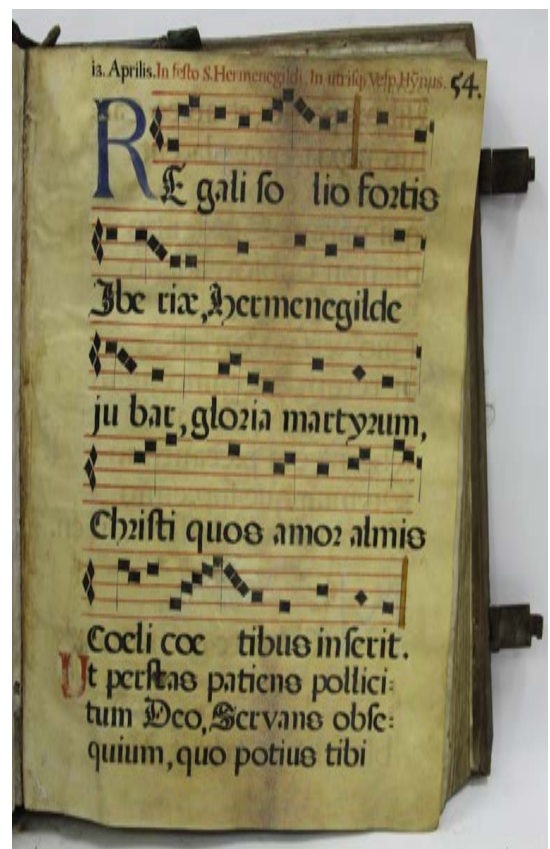 13. Aprilis. In festo S. Hermenegildi, In utrisq; Vesp. Hỹnus. 54.
REgali so lio fortis
Ibe riæ, Hermenegilde
ju bar, gloria martyrum,
Christi quos amor almis
Coeli coe tibus inserit.
Ut perstas patiens pollici:
tum Deo, Servans obse:
quium, quo potius tibi